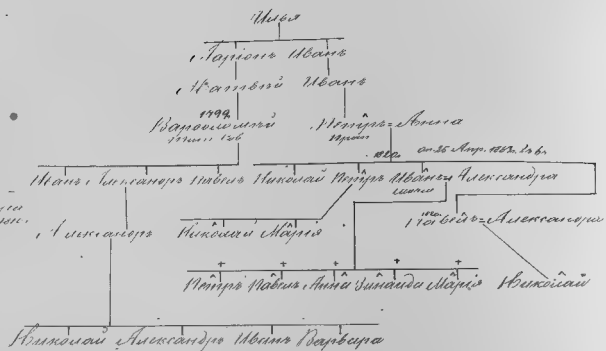 Илья
Ларіонъ Иванъ
Матвѣй Иванъ
1799
Варѳоломѣй Петръ = Анна
1820. ок. 25 Апр. 1863.
Иванъ Александръ Павелъ Николай Петръ Иванъ = Александра
Александръ Николай Марія Павелъ = Александра
Петръ Павелъ Анна Зинаида Марія Николай
Николай Александръ Иванъ Варвара